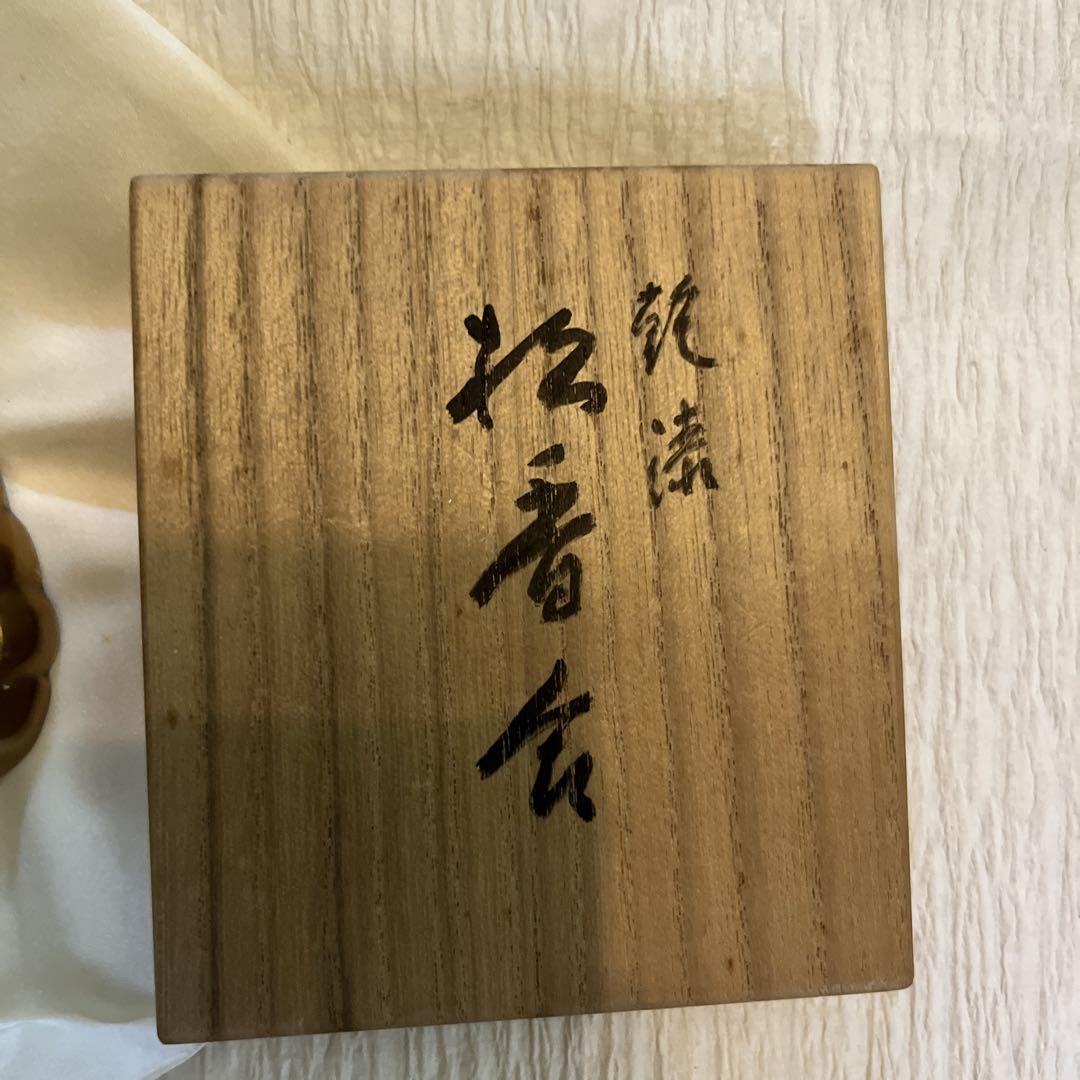 乾漆
松香合